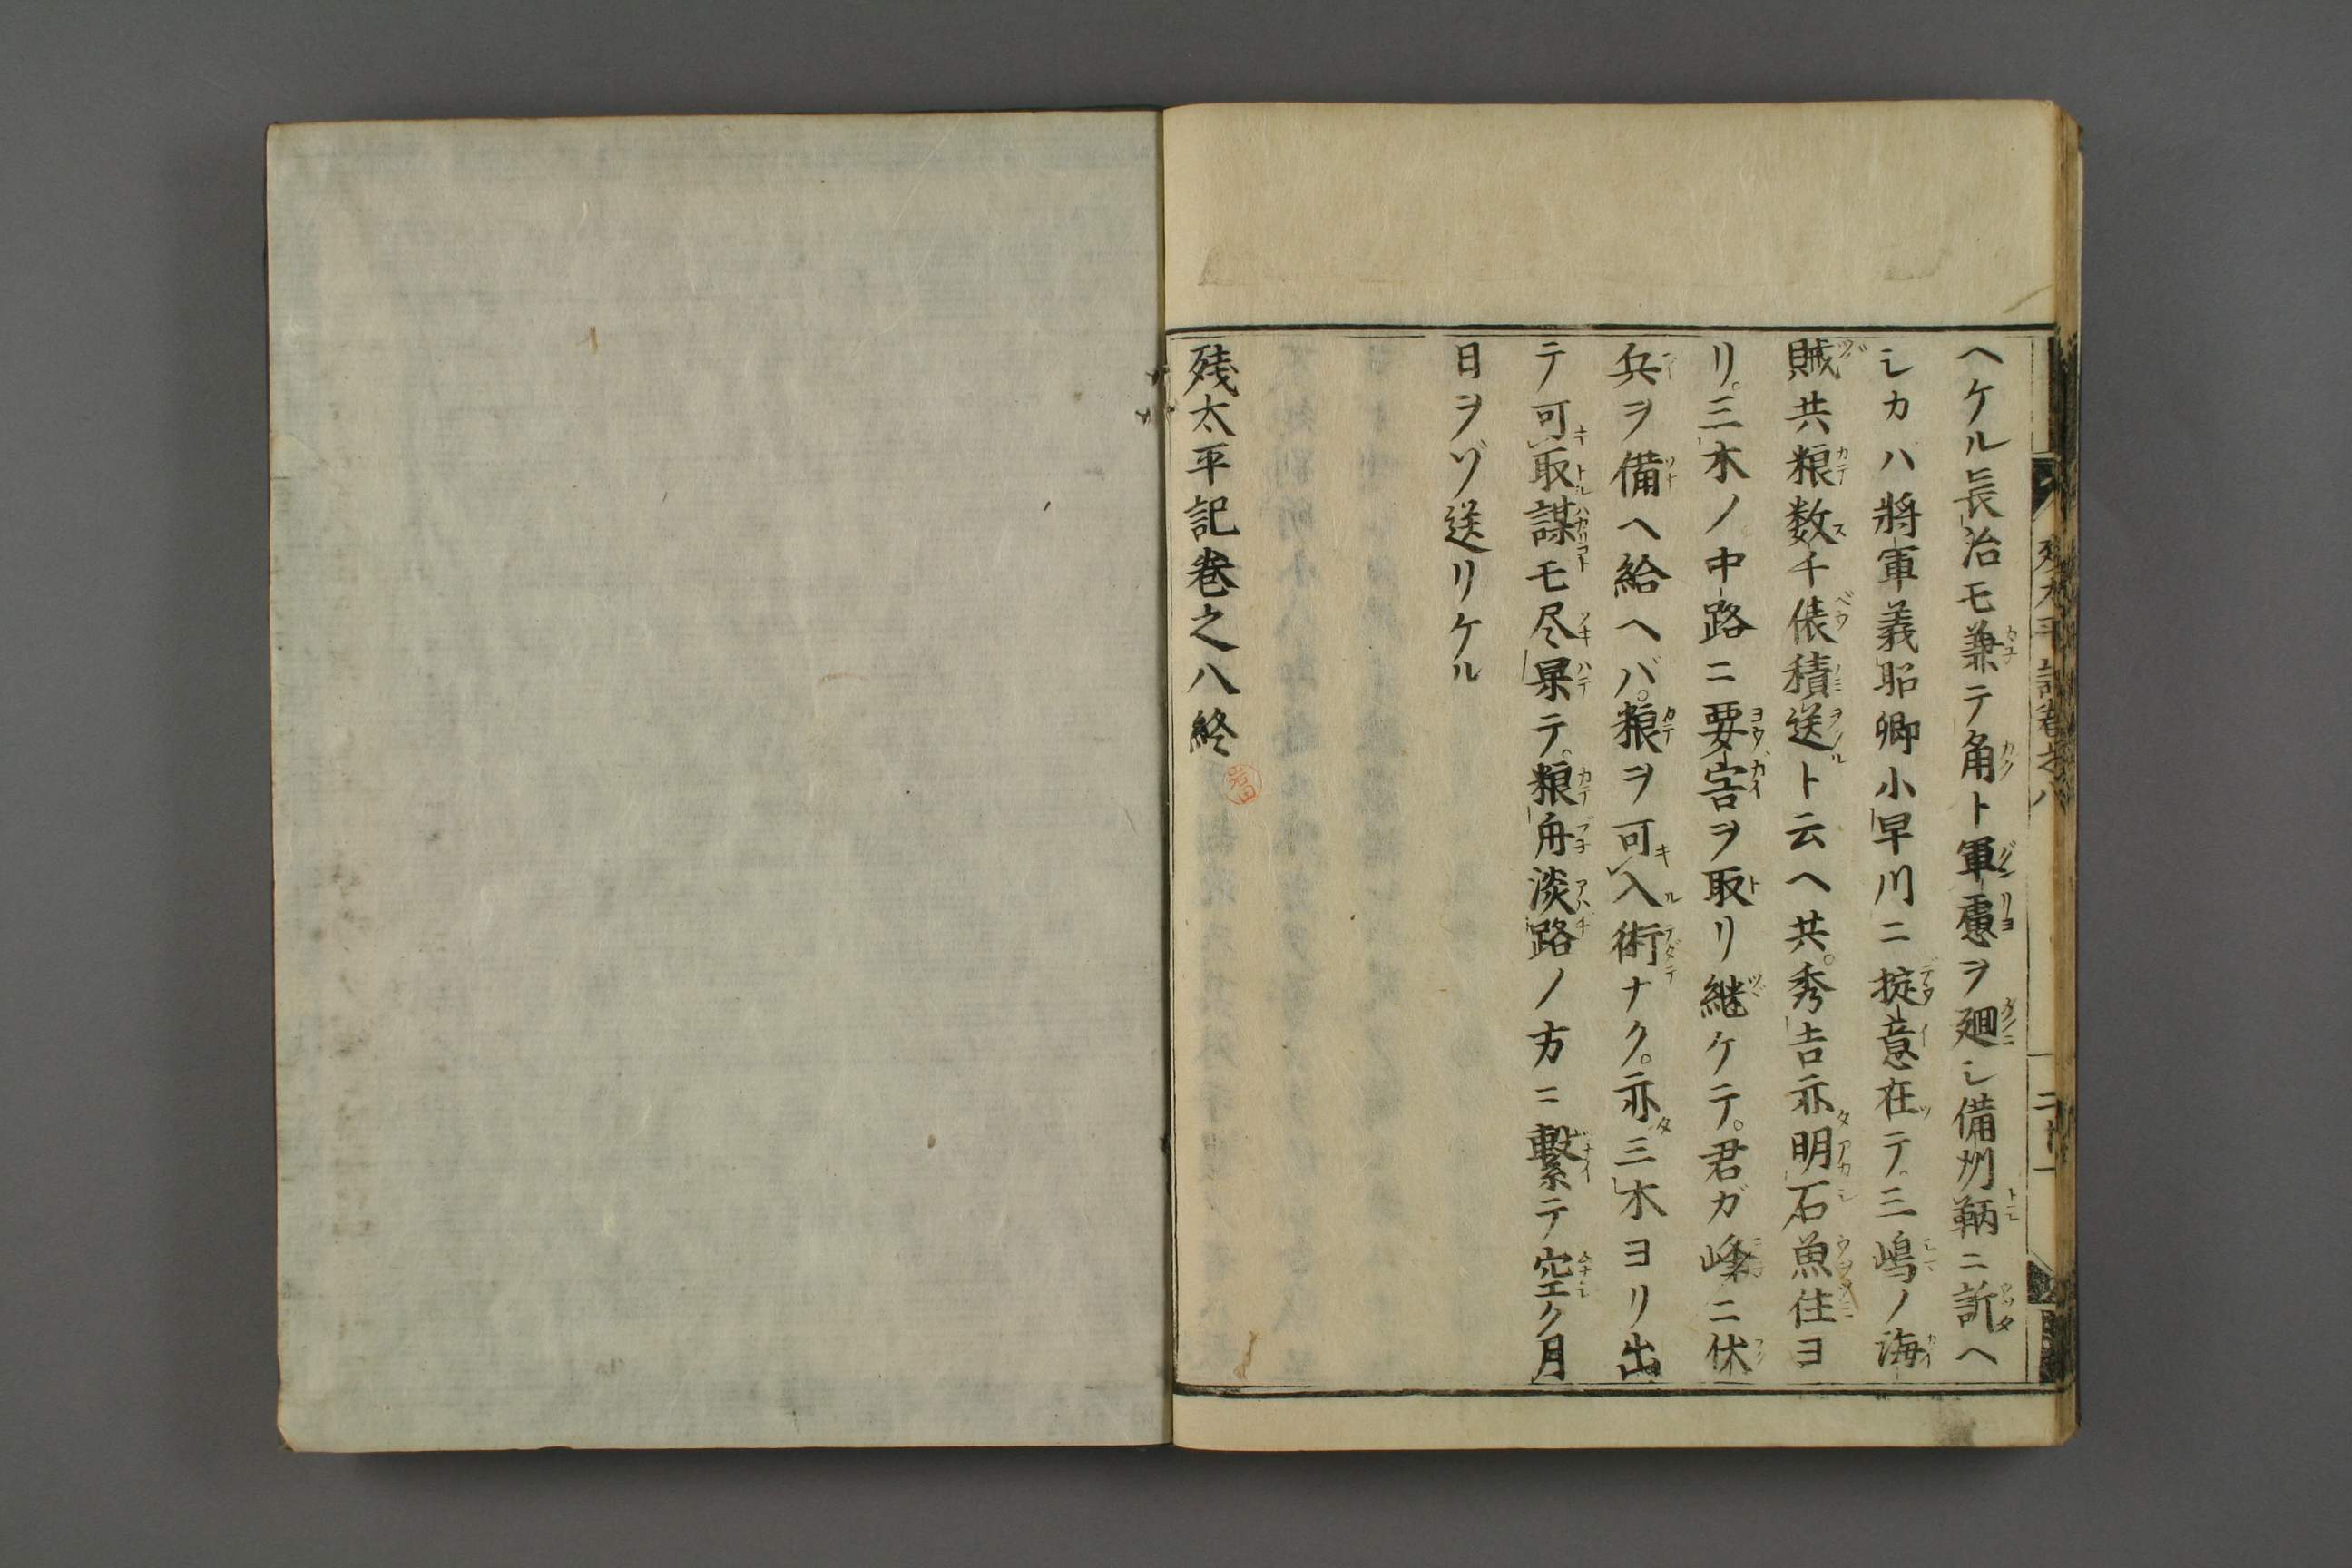 ヘケル長治モ兼テ角ト軍慮ヲ廻シ備州鞆ニ訴ヘ
シカバ將軍義昭卿小早川ニ掟意在テ三嶋ノ海
賊共粮数千俵積送ト云ヘ共。秀吉亦明石魚住ヨ
リ。三木ノ中路ニ要害ヲ取リ継ケテ。君ガ峰ニ伏
兵ヲ備ヘ給ヘバ。粮ヲ可入術ナク。亦三木ヨリ出
テ可取謀モ尽果テ。粮舟淡路ノ方ニ繋テ空ク月
日ヲゾ送リケル
残太平記巻之八終
岩田
残太平記巻之八